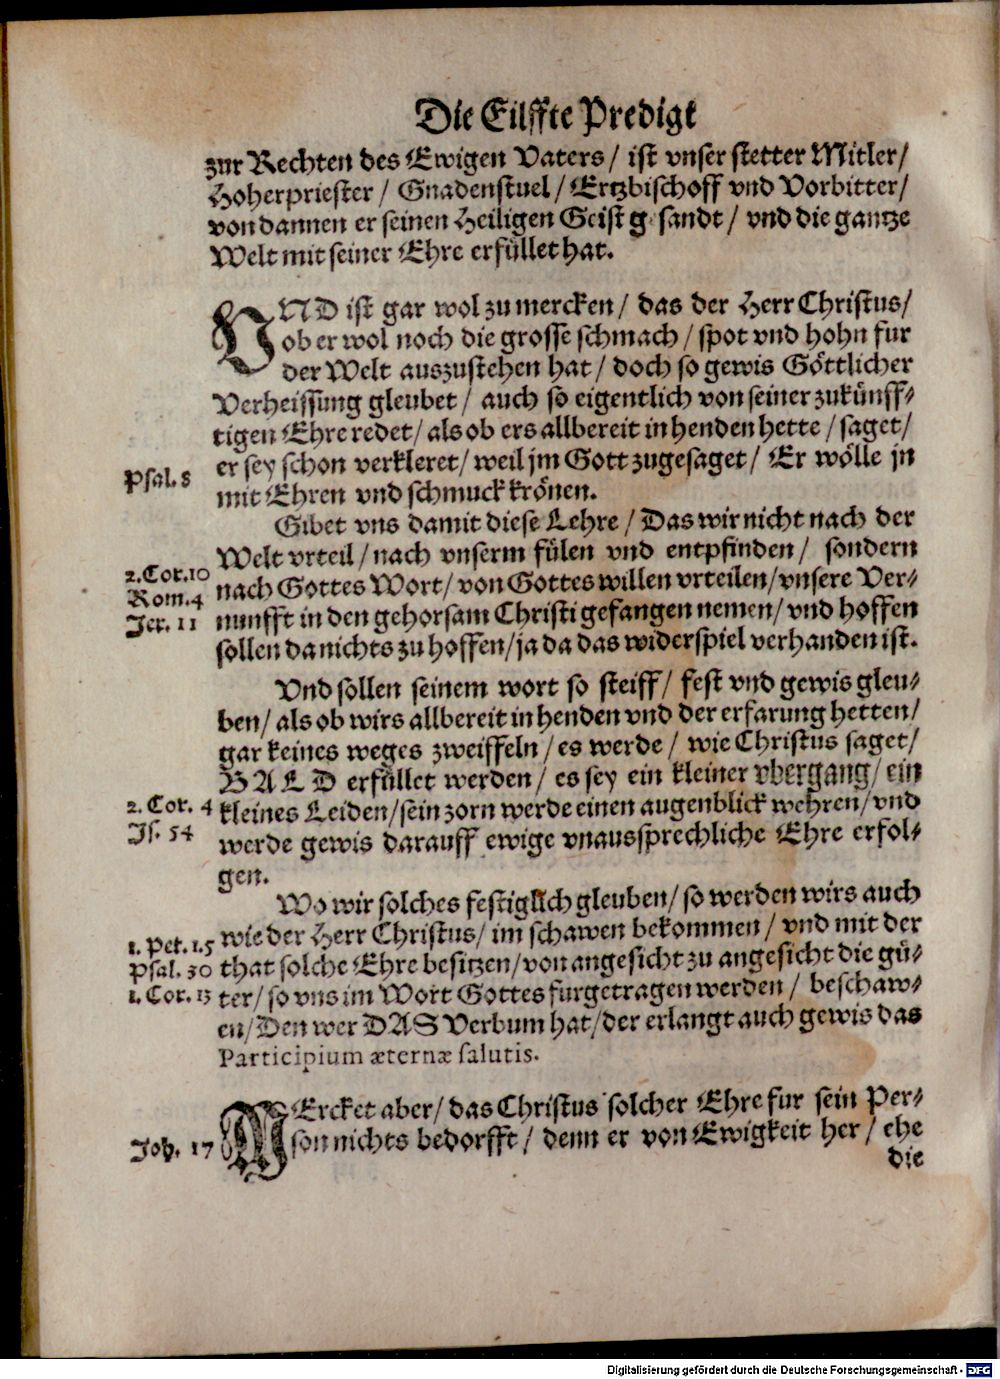 Die Eilffte Predigt
zur Rechten des Ewigen Vaters / ist vnser stetter Mitler /
Hoherpriester / Gnadenstuel / Ertzbischoff vnd Vorbitter /
von dannen er seinen Heiligen Geist gesandt / vnd die gantze
Welt mit seiner Ehre erfüllet hat.
VND ist gar wol zu mercken / das der Herr Christus /
ob er wol noch die grosse schmach / spot vnd hohn fur
der Welt auszustehen hat / doch so gewis Göttlicher
Verheissung gleubet / auch so eigentlich von seiner zukünff-
tigen Ehre redet / als ob ers allbereit in henden hette / saget /
er sey schon verkleret / weil jm Gott zugesaget / Er wölle jn
Psal. 8
mit Ehren vnd schmuck krönen.
Gibet vns damit diese Lehre / Das wir nicht nach der
Welt vrteil / nach vnserm fülen vnd entpfinden / sondern
2. Cor. 10
nach Gottes Wort / von Gottes willen vrteilen / vnsere Ver-
Rom. 4
nunfft in den gehorsam Christi gefangen nemen / vnd hoffen
Jer. 11
sollen da nichts zu hoffen / ja da das widerspiel verhanden ist.
Vnd sollen seinem wort so steiff / fest vnd gewis gleu-
ben / als ob wirs allbereit in henden vnd der erfarung hetten /
gar keines weges zweiffeln / es werde / wie Christus saget /
BALD erfüllet werden / es sey ein kleiner vbergang / ein
2. Cor. 4
kleines Leiden / sein zorn werde einen augenblick wehren / vnd
Js. 54
werde gewis darauff ewige vnaussprechliche Ehre erfol-
gen.
Wo wir solches festiglich gleuben / so werden wirs auch
1. Pet. 1. 5
wie der Herr Christus / im schawen bekommen / vnd mit der
Psal. 30
that solche Ehre besitzen / von angesicht zu angesicht die gü-
1. Cor. 13
ter / so vns im Wort Gottes furgetragen werden / beschaw-
en / Den wer DAS Verbum hat / der erlangt auch gewis das
Participium æternæ salutis.
MErcket aber / das Christus solcher Ehre fur sein Per-
Joh. 17
son nichts bedorfft / denn er von Ewigkeit her / ehe
die
Digitalisierung gefördert durch die Deutsche Forschungsgemeinschaft - DFG